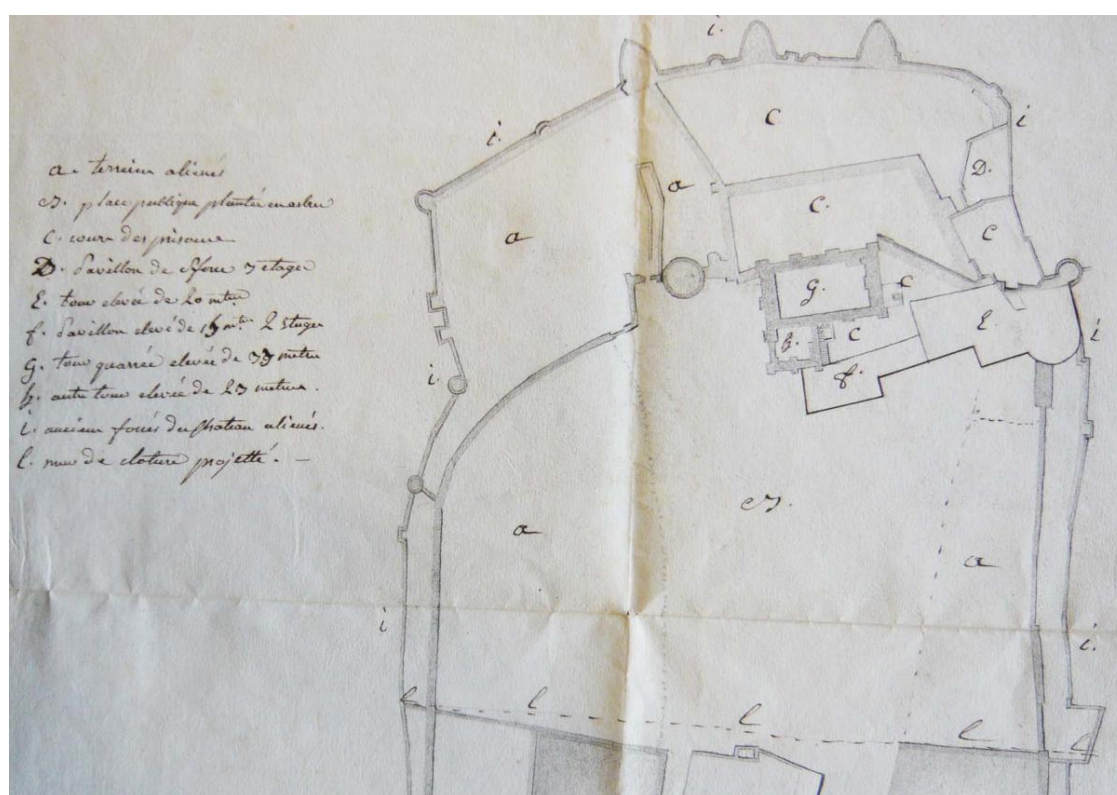 a. terrein aliénés
B. place publique plantée en arbre
C. cour des prisons
D. Pavillon de Sforce 3 etages
E. tour elevée de 20 mtres
f. Pavillon elevé de 15 mtr. 2 Etages
G. tour quarrée elevée de 33 metres
h. autre tour elevée de 23 metres.
i. anciens fossés du Chateau aliénés.
l. mur de cloture projetté. —
i.
i.
C
i
a
D.
a
C.
C
G.
C
E.
i
h.
C
i.
f.
B.
a
a
i
i.
l
l
l
l
l